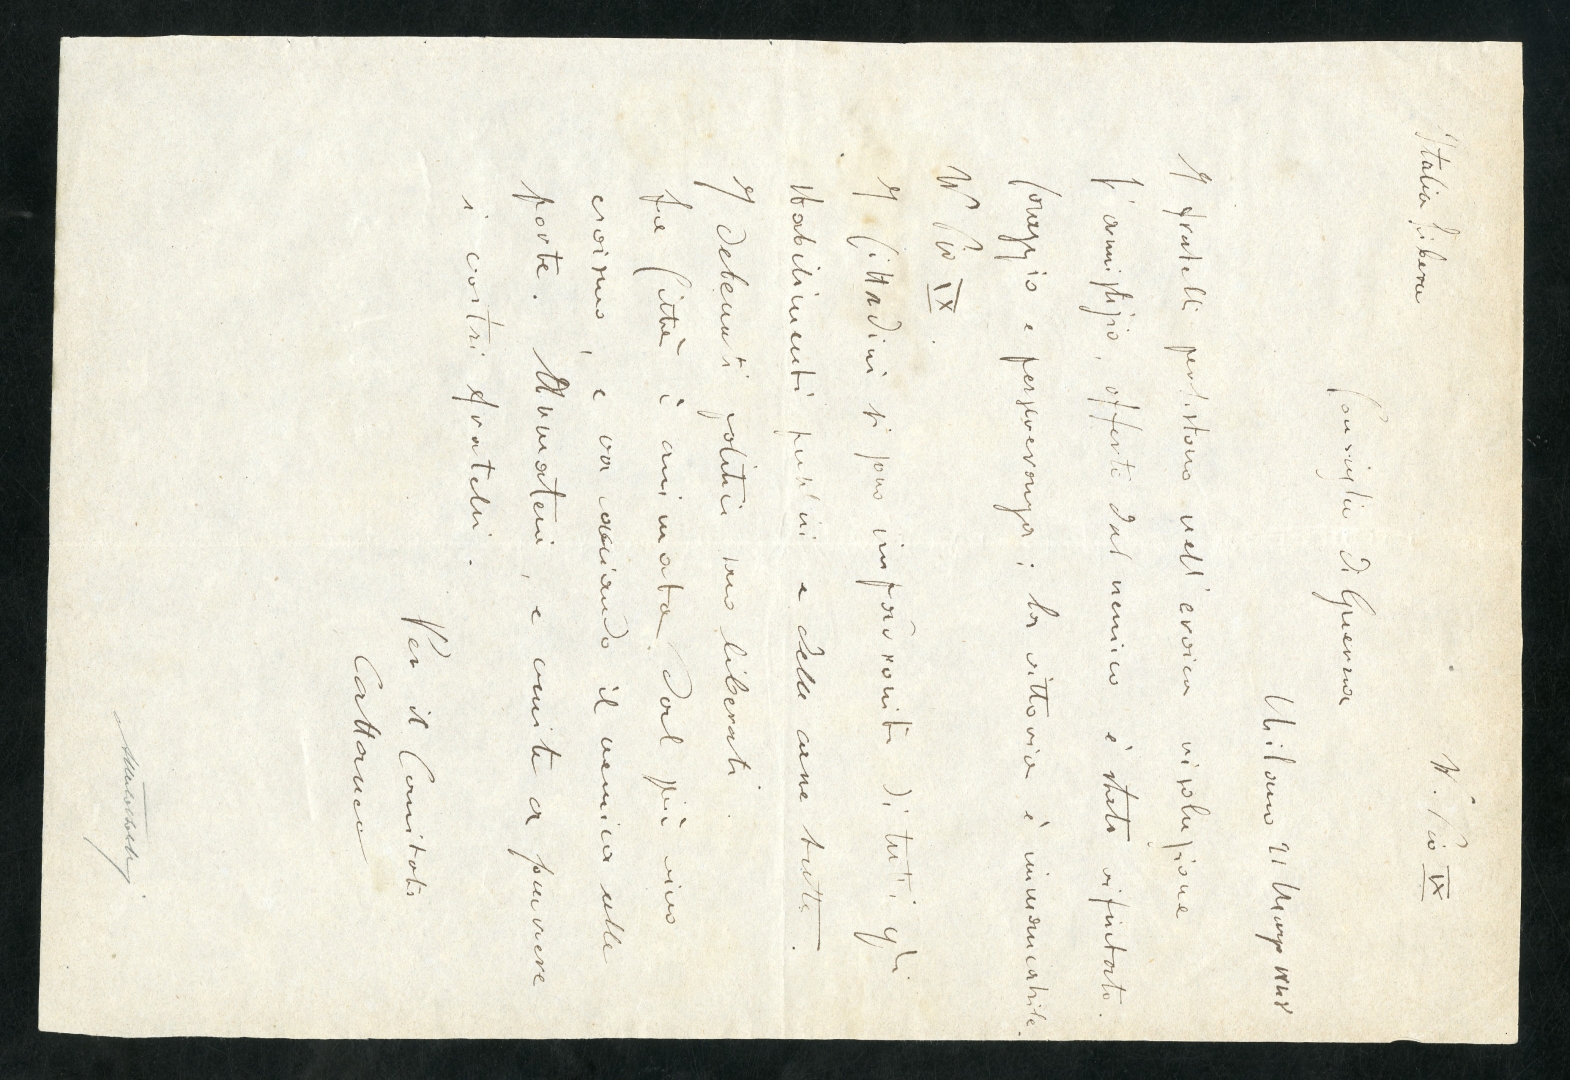 Italia Libera W. Pio IX
Consiglio di Guerra
Milano 21 Marzo 1848
I fratelli persistono nell'eroica risoluzione
l'armistizio, offerto dal nemico è stato rifiutato.
Coraggio e perseveranza; la vittoria è immancabile.
W Pio IX.
I Cittadini si sono impadroniti di tutti gli
stabilimenti pubblici e delle arme tutte.
I detenuti politici sono liberati.
La Città è animata dal più vivo
eroismo, e va cacciando il nemico alle
porte. Armatevi, e venite a punire
i vostri fratelli.
Per il Comitato
Cattaneo